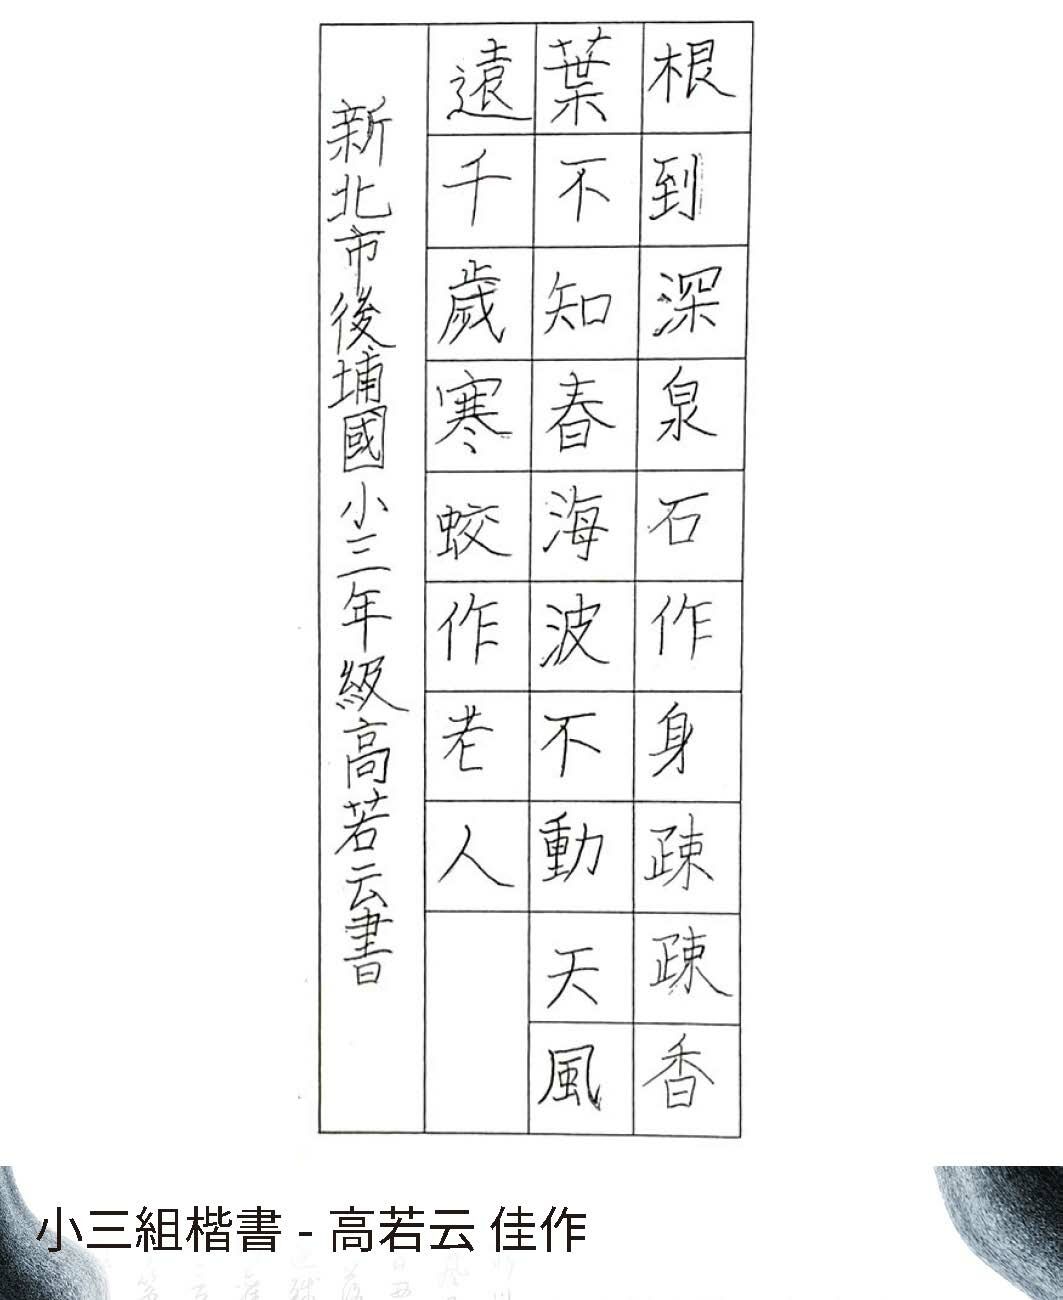 根到深泉石作身疎疎香
葉不知春海波不動天風
遠千歲寒蛟作老人
新北市後埔國小三年級高若云書
小三組楷書 - 高若云 佳作